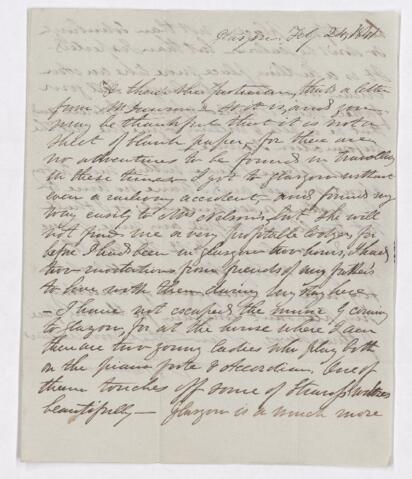 Glasgow, Feby 24, 1841
thats a letter
from Mr and you
may be thankful that it is not a
sheet of blank paper, for there are
no adventures to be found in travelling
in these times I got to Glasgow without
even a railway accident, and found my
way easily to Mrs Nelsons, but she will
not find me a very profitable lodger for
before I had been in Glasgow two hours, I had
two invitations from friends of my fathers
to live with them during my stay here
— I have not escaped the music by coming
to Glasgow, for at the house where I am
there are two young ladies who play both
on the piano forte & accordian. One of
them touches off some of Strauss's waltzes
beautifully — Glasgow is a much more